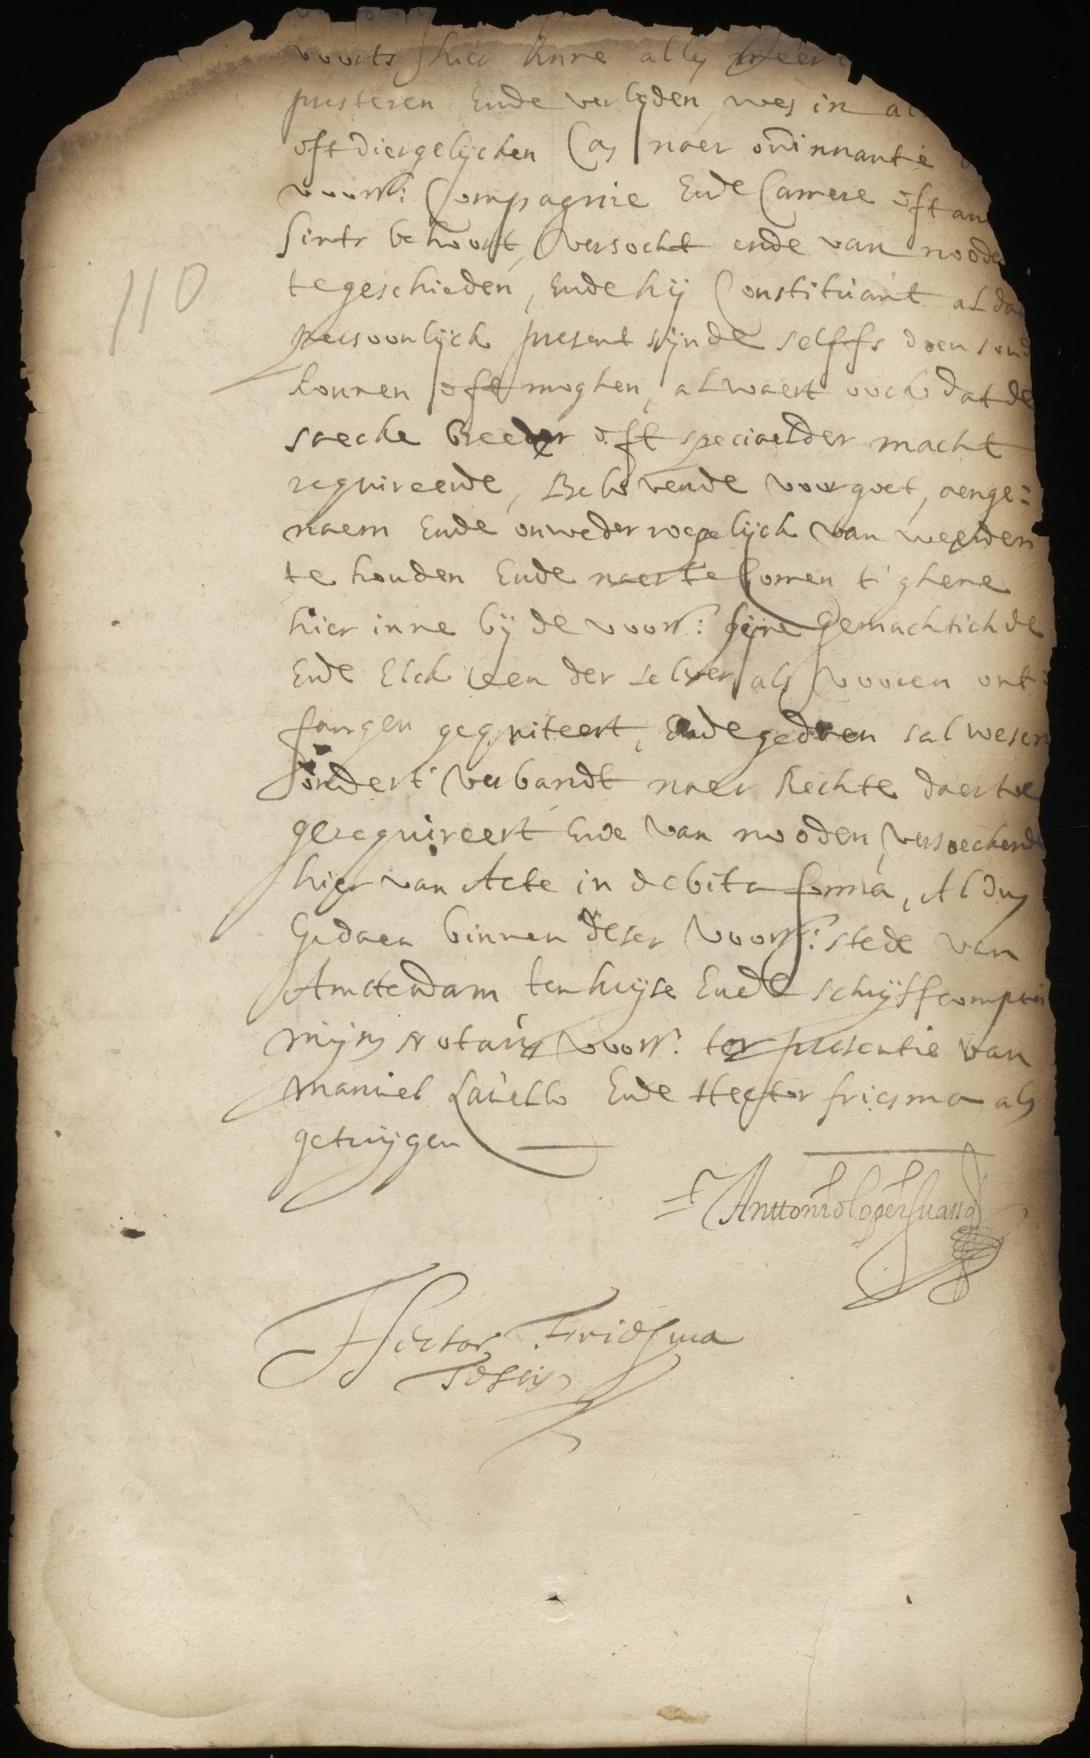 voorts hier inne alles meer
presteren Ende verlijden, wes in al
oft diergelijcken Cas naer ordinnantie
voorss: Compagnie Ende Camere oft an
sints behoort, versocht ende van noode
te geschieden, Ende hij Constituant al daer
persoonlijck present sijnde selffs doen soud
konnen oft moghen, al waert oock dat de
saecke breeder oft speciaelder macht
requireerde, Belovende voor goet, aenge=
naem Ende onwederroepelijck van weerden
te houden Ende naer te komen t'ghene
hier inne bij de voorss: sijne gemachtichde
Ende Elck een der selver als vooren ont=
fangen gequiteert, Ende gedaen sal wesen
onder t' verbandt naer Rechte daertoe
gerequireert Ende van nooden, versoeckende
hier van Acte in debita forma, Aldus
Gedaen binnen deser voorss: stede van
Amsterdam ten huijse Ende schrijffcomptoir
mijns Notarij voorss: ter presentie van
Manuel Lauello Ende Hector friesma als
getuijgen
Anttonio Lopes Suasso
Hector Friesma
Testis
110